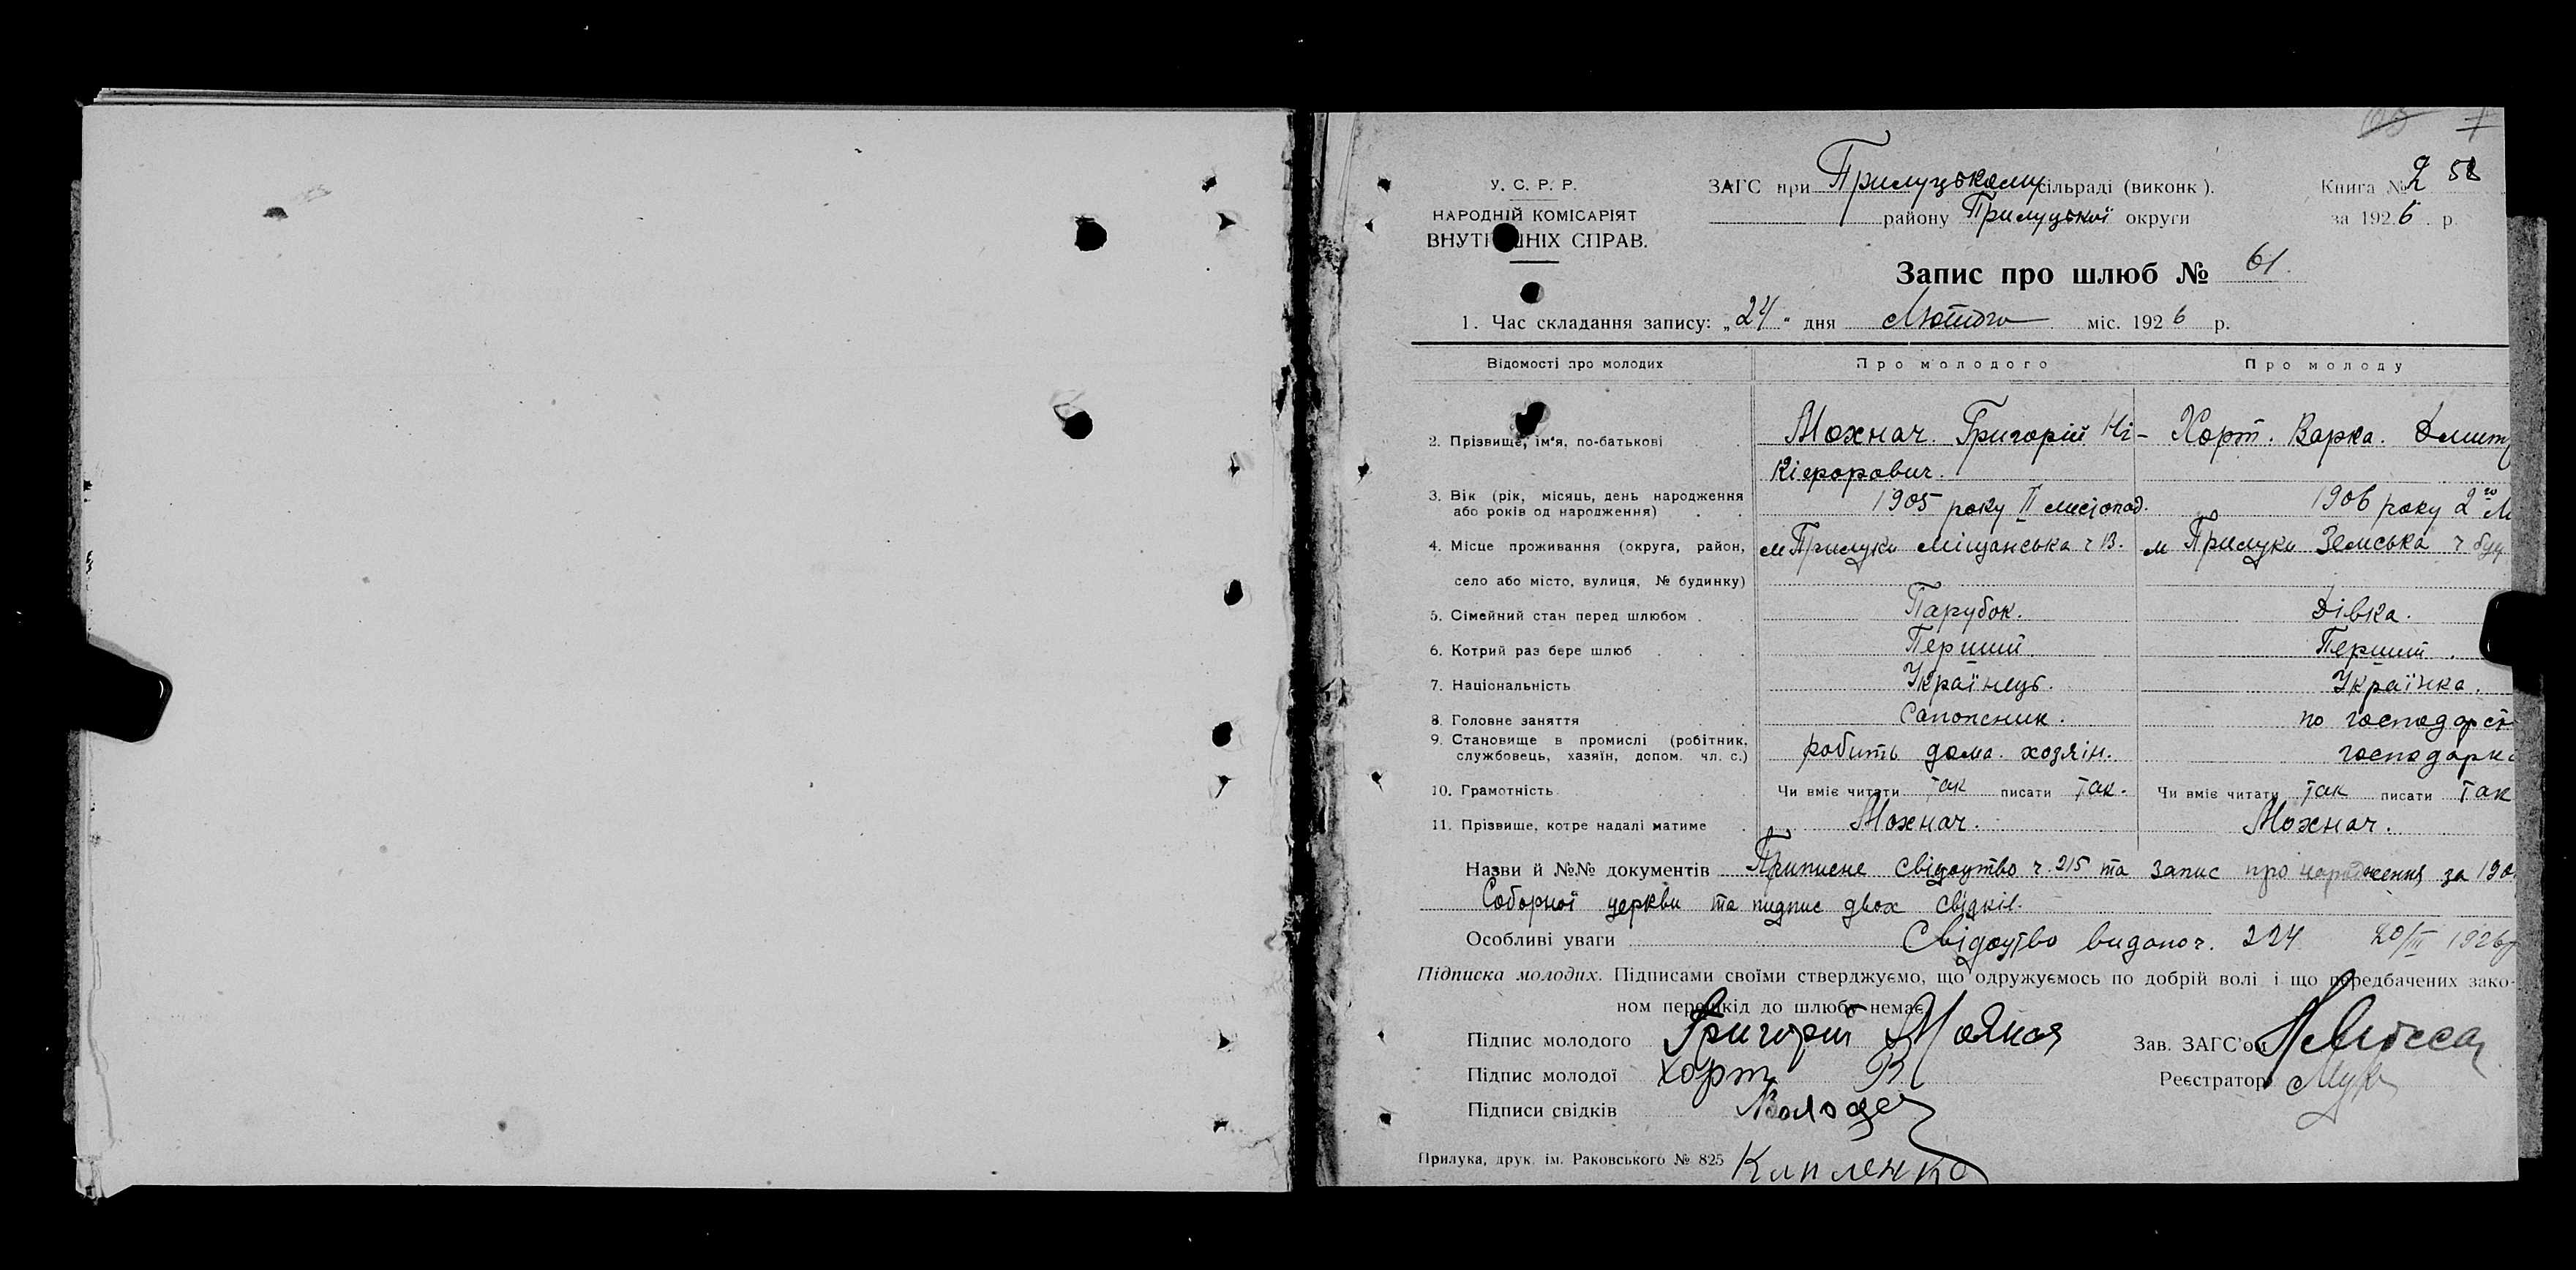 У. С. Р. Р.
НАРОДНІЙ КОМІСАРІЯТ
ВНУТРІШНІХ СПРАВ.
ЗАГС при Прилуцькому сільраді (виконк ).
району Прилуцької округи
Книга № 2 58
за 1926 р.
Запис про шлюб № 61.
1. Час складання запису: „24“ дня Лютого міс. 1926 р.
Відомості про молодих Про молодого Про молоду
2. Прізвище, ім'я, по-батькові Мохнач. Григорій Ні- Хорт. Варка. Дмит
кіфорович.
3. Вік (рік, місяць, день народження 1905 року 11 листопад. 1906 року 2го
або років од народження)
4. Місце проживання (округа, район, м Прилуки міщанська ч 13. м Прилуки Земська ч буд
село або місто, вулиця, № будинку)
5. Сімейний стан перед шлюбом . Парубок. Дівка.
6. Котрий раз бере шлюб . . . Перший. Перший.
7. Національність Українець. Українка.
8. Головне заняття Сапожник. по господарст
9. Становище в промислі (робітник, робить дома. хозяїн. господарка
службовець, хазяїн, допом. чл. с.)
10. Грамотність Чи вміє читати так писати так. Чи вміє читати так писати так
11. Прізвище, котре надалі матиме . Мохнач. Мохнач.
Назви й №№ документів Приписне свідоцтво ч. 215 та запис про народження за 190
Соборної церкви та пидпис двох свідків.
Особливі уваги Свідоцтво видано ч. 224 20/III 1926 р
Підписка молодих. Підписами своїми стверджуємо, що одружуємось по добрій волі і що передбачених зако-
ном перешкід до шлюбу немає
Підпис молодого Григорий Мохнач
Зав. ЗАГС'ом
Підпис молодої Хорт В
Реєстратор
Підписи свідків
Прилука, друк. ім. Раковського № 825